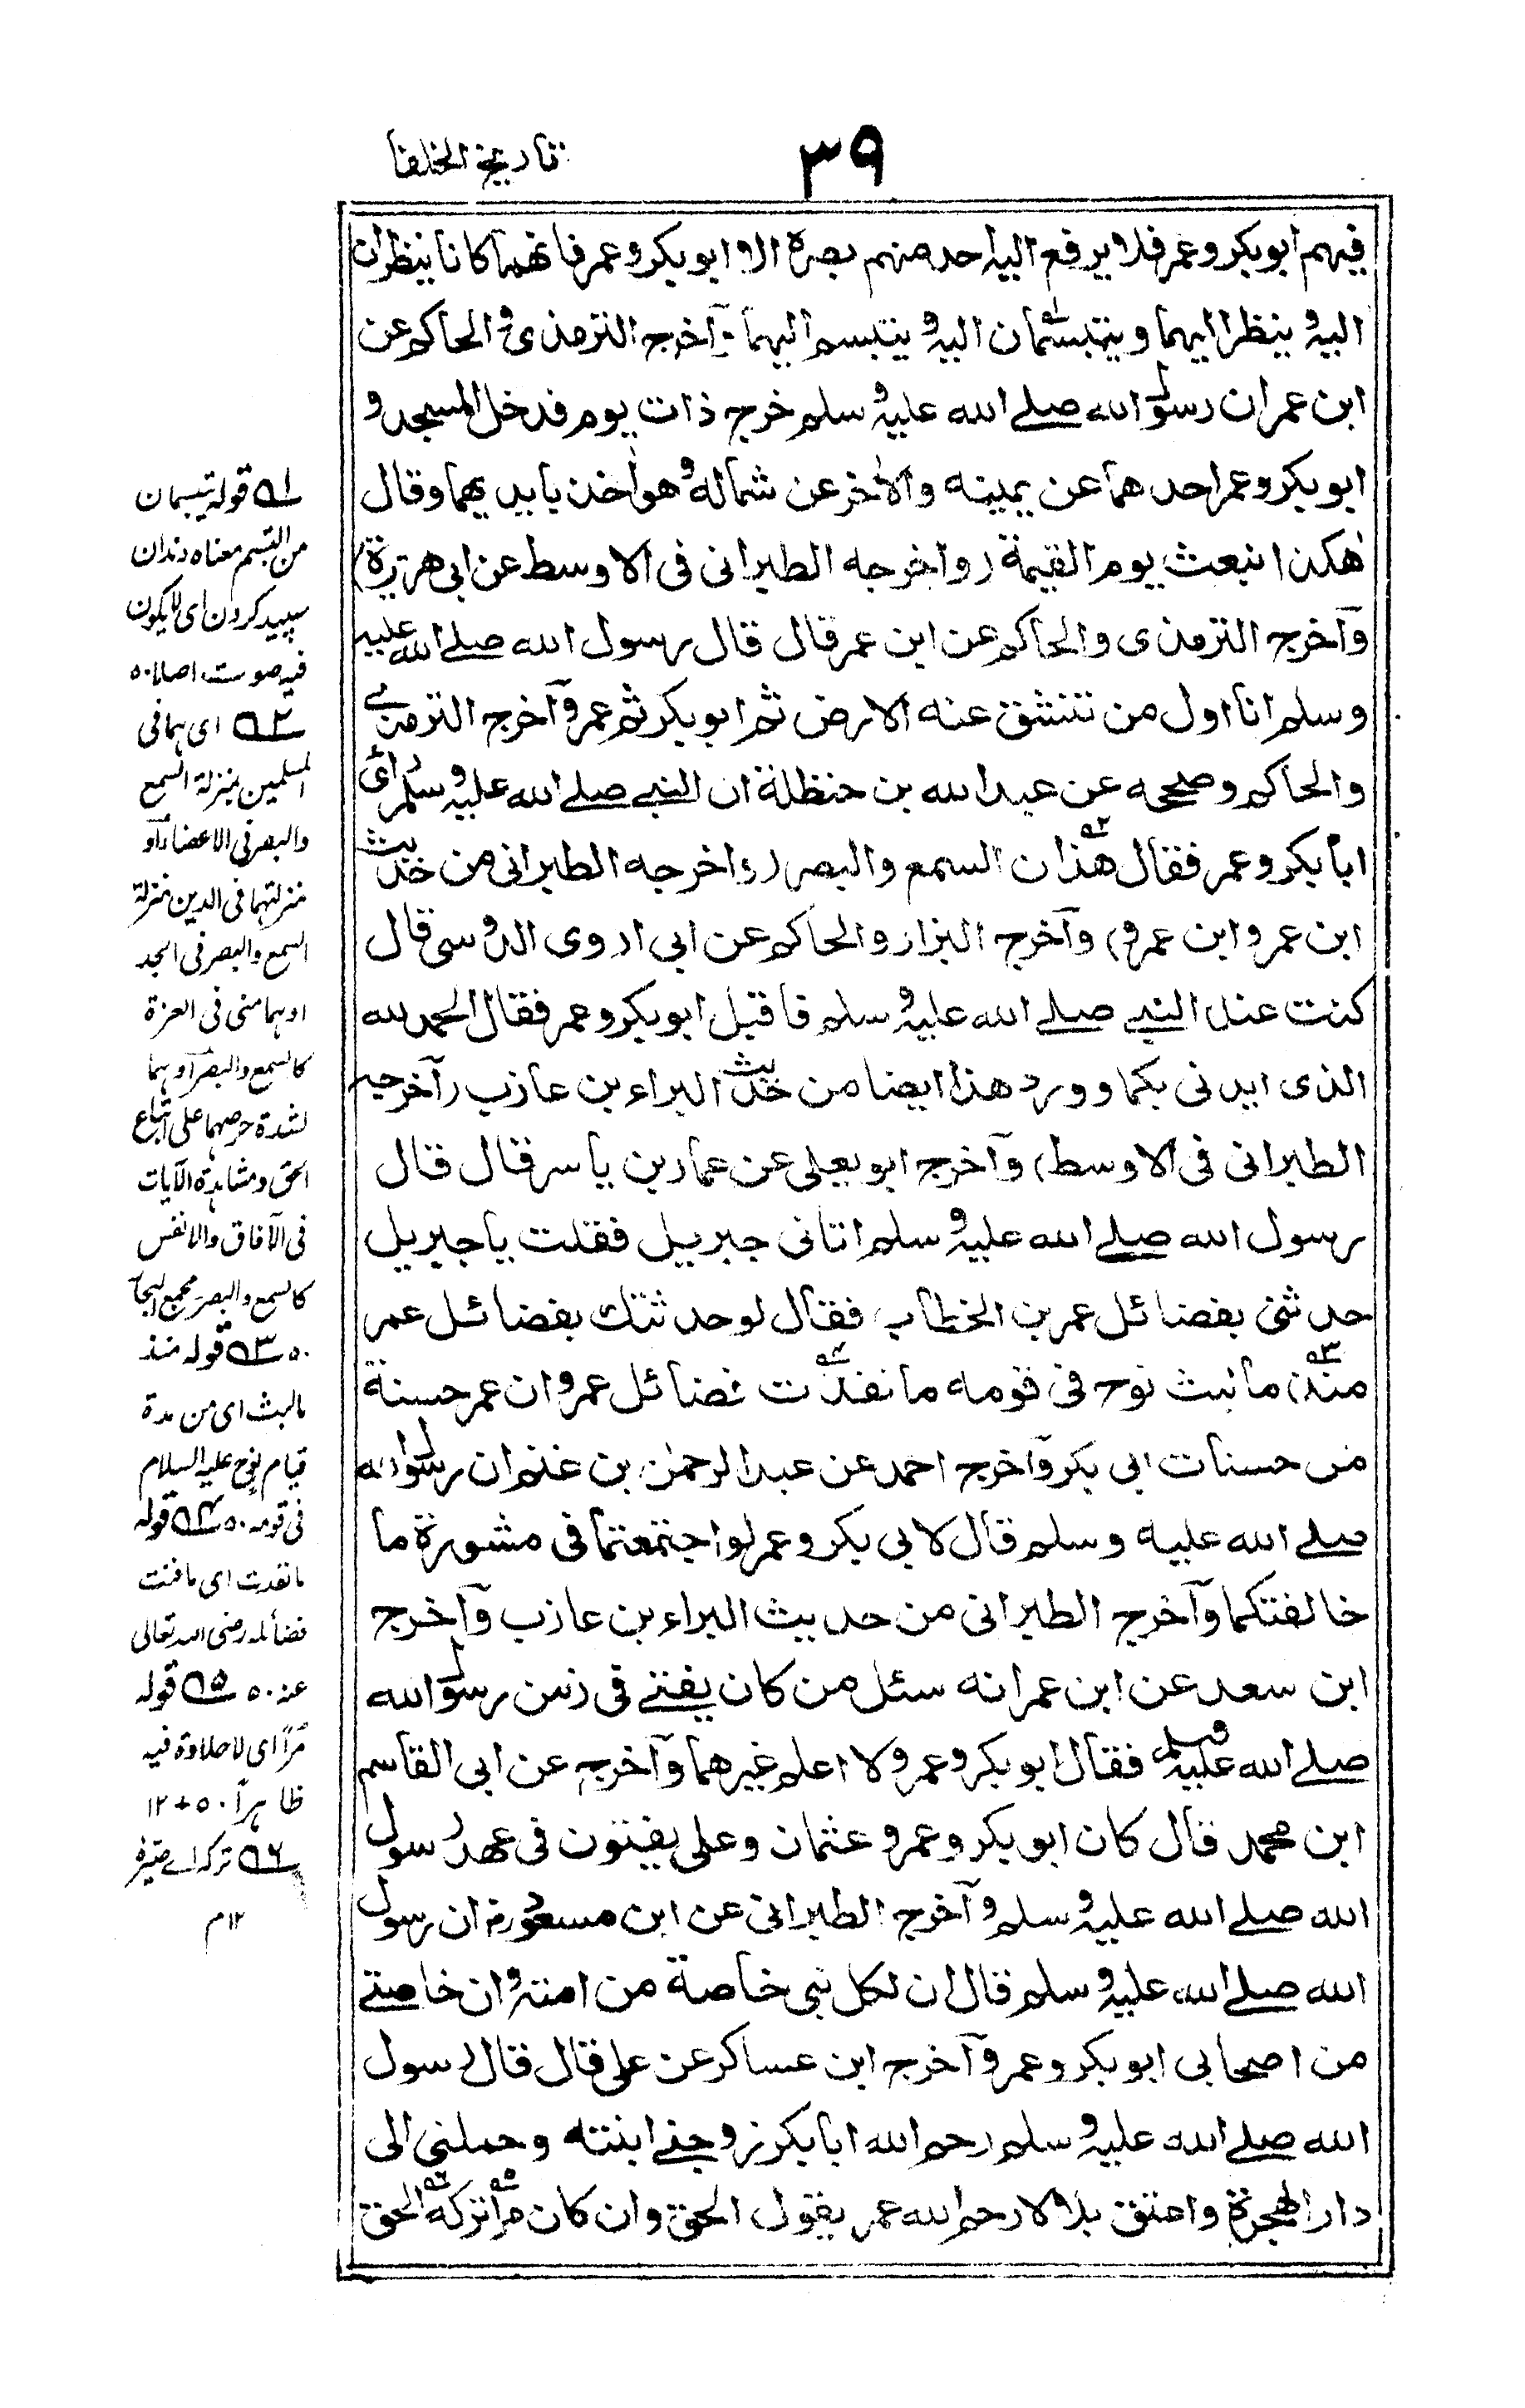 ٣٩
تاريخ الخلفا
فيهم ابو بكر وعمر فلا يرفع اليه احد منهم بصره الا ابو بكر وعمر فانهما كانا ينظران
اليه و ينظر اليهما ويتبسمان اليه و يتبسم اليهما وآخرج الترمذى و الحاكم عن
ابن عمر ان رسول الله صلے الله عليه و سلم خرج ذات يوم فدخل المسجد و
ابو بكر وعمر احدهما عن يمينه والاٰخر عن شماله و هو اٰخذ بايديهما وقال
هٰكذا نبعث يوم القيٰمة (واخرجه الطبرانى فى الاوسط عن ابى هريرة)
وآخرج الترمذى والحاكم عن ابن عمر قال قال رسول الله صلے الله عليه
وسلم انا اول من تنشق عنه الارض ثم ابو بكر ثم عمر وآخرج الترمذے
والحاكم وصححه عن عبد الله بن حنظلة ان النبے صلے الله عليه و سلم رأى
ابا بكر وعمر فقال هٰذان السمع والبصر (واخرجه الطبرانى من حديث
ابن عمر وابن عمرو) وآخرج البزار والحاكم عن ابى اروى الدوسى قال
كنت عند النبے صلے الله عليه و سلم فاقبل ابو بكر وعمر فقال الحمد لله
الذى ايدنى بكما وورد هذا ايضا من حديث البراء بن عازب (آخرجه
الطبرانى فى الاوسط) وآخرج ابو يعلى عن عمار بن ياسر قال قال
رسول الله صلے الله عليه و سلم اتانى جبريل فقلت يا جبريل
حدثنى بفضائل عمر بن الخطاب فقال لو حدثتك بفضائل عمر
منذ ما لبث نوح فى قومه ما نفدت فضائل عمر وان عمر حسنة
من حسنات ابى بكر وآخرج احمد عن عبد الرحمٰن بن غنم ان رسول الله
صلے الله عليه وسلم قال لابى بكر وعمر لو اجتمعتما فى مشورة ما
خالفتكما وآخرج الطبرانى من حديث البراء بن عازب وآخرج
ابن سعد عن ابن عمر انه سئل من كان يفتے فى زمن رسول الله
صلے الله عليه وسلم فقال ابو بكر وعمر ولا اعلم غيرهما وآخرج عن ابى القاسم
ابن محمد قال كان ابو بكر وعمر وعثمان وعلى يفتون فى عهد رسول
الله صلے الله عليه و سلم وآخرج الطبرانى عن ابن مسعود رض ان رسول
الله صلے الله عليه و سلم قال ان لكل نبى خاصة من امته و ان خاصتے
من اصحابى ابو بكر وعمر وآخرج ابن عساكر عن على قال قال رسول
الله صلے الله عليه و سلم رحم الله ابا بكر زوجنے ابنته وحملنى الى
دار الهجرة واعتق بلالا رحم الله عمر يقول الحق وان كان مرا تركه الحق
١ قوله يتبسمان
من التبسم معناه دندان
سپید کردن ای لا یکون
فیه صوت اصلا ٥٠
٢ ای هما فی
المسلمین بمنزلة السمع
والبصر فی الاعضاء او
منزلتهما فی الدین بمنزلة
السمع والبصر فی الجسد
او هما منی فی العزة
کالسمع والبصر او هما
لشدة حرصهما علی اتباع
الحق ومشاهدة الآیات
فی الآفاق والانفس
کالسمع والبصر مجمع البحار
٥٠ ٣ قوله منذ
مالبث ای من مدة
قیام نوح علیه السلام
فی قومه ٥٠ ٤ قوله
مانفدت ای ما فنت
فضائله رضی الله تعالی
عنه ٥٠ ٥ قوله
مراً ای لا حلاوة فیه
ظاهراً ٥٠ + ١٢
٦ ترکه اے صیره
١٢ م